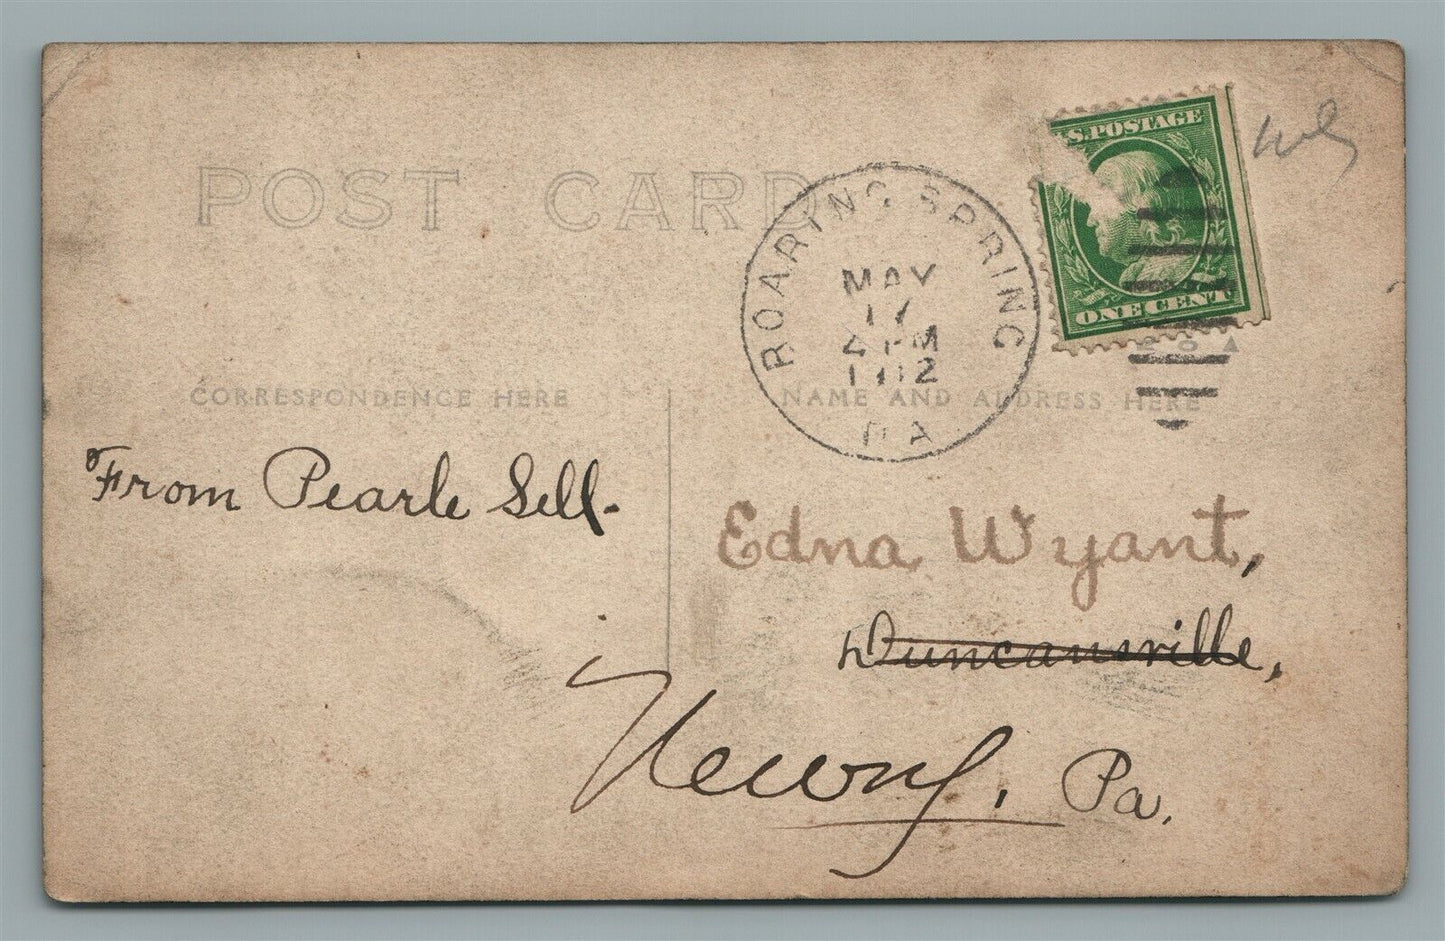 POST CARD
S. POSTAGE
ONE CENT
ROARING SPRING
MAY
17
4 PM
1912
PA
CORRESPONDENCE HERE
NAME AND ADDRESS HERE
From Pearle Sell.
Edna Wyant,
Duncansville,
Newry, Pa.